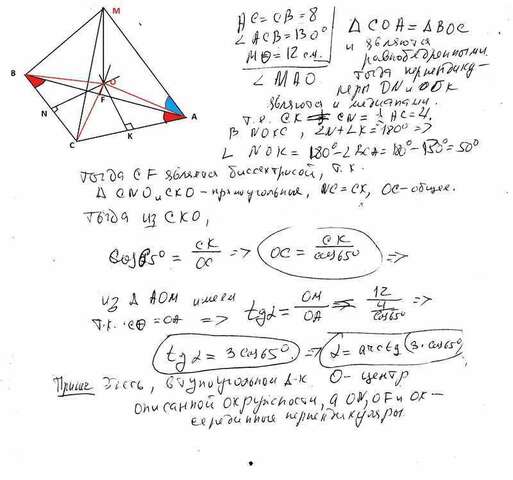 M
B
O
N
F
A
C
K
AC = CB = 8
∠ACB = 130°
MO = 12 см.
∠ MAO
Δ COA = ΔBOC
и являются
равнобедренными.
тогда перпендику-
ляры ON и OK
являются и медианами.
т.е. CK = CN = ½ AC = 4.
В NOKC, ∠N+∠K=180° =>
∠ NOK = 180°-∠BCA = 180°-130° = 50°
тогда CF является биссектрисой, т.к.
Δ CNO и CKO - прямоугольные, NC=CK, OC-общее.
тогда из CKO,
cos65° = CK/OC => OC = CK/cos65° =>
из Δ AOM имеем
т.к. CO = OA => tgα = OM/OA = 12/(4/cos65°) =>
tgα = 3cos65° => α = arctg(3·cos65°)
Здесь, в тупоугольном Δ-к O- центр
описанной окружности, а ON, OF и OK-
серединные перпендикуляры.